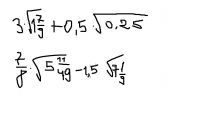 3·√1 7/9 + 0,5·√0,25
7/8·√5 11/49 - 1,5 √7 1/9